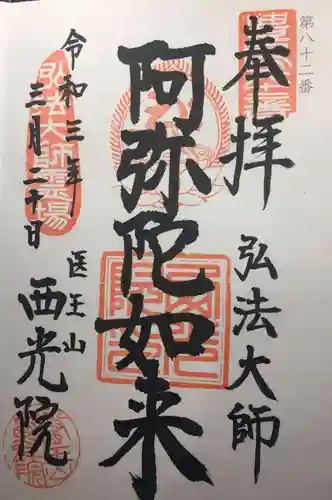 第八十二番
奉拝
弘法大師
阿弥陀如来
令和三年
三月二十日
医王山
西光院
弘法大師霊場